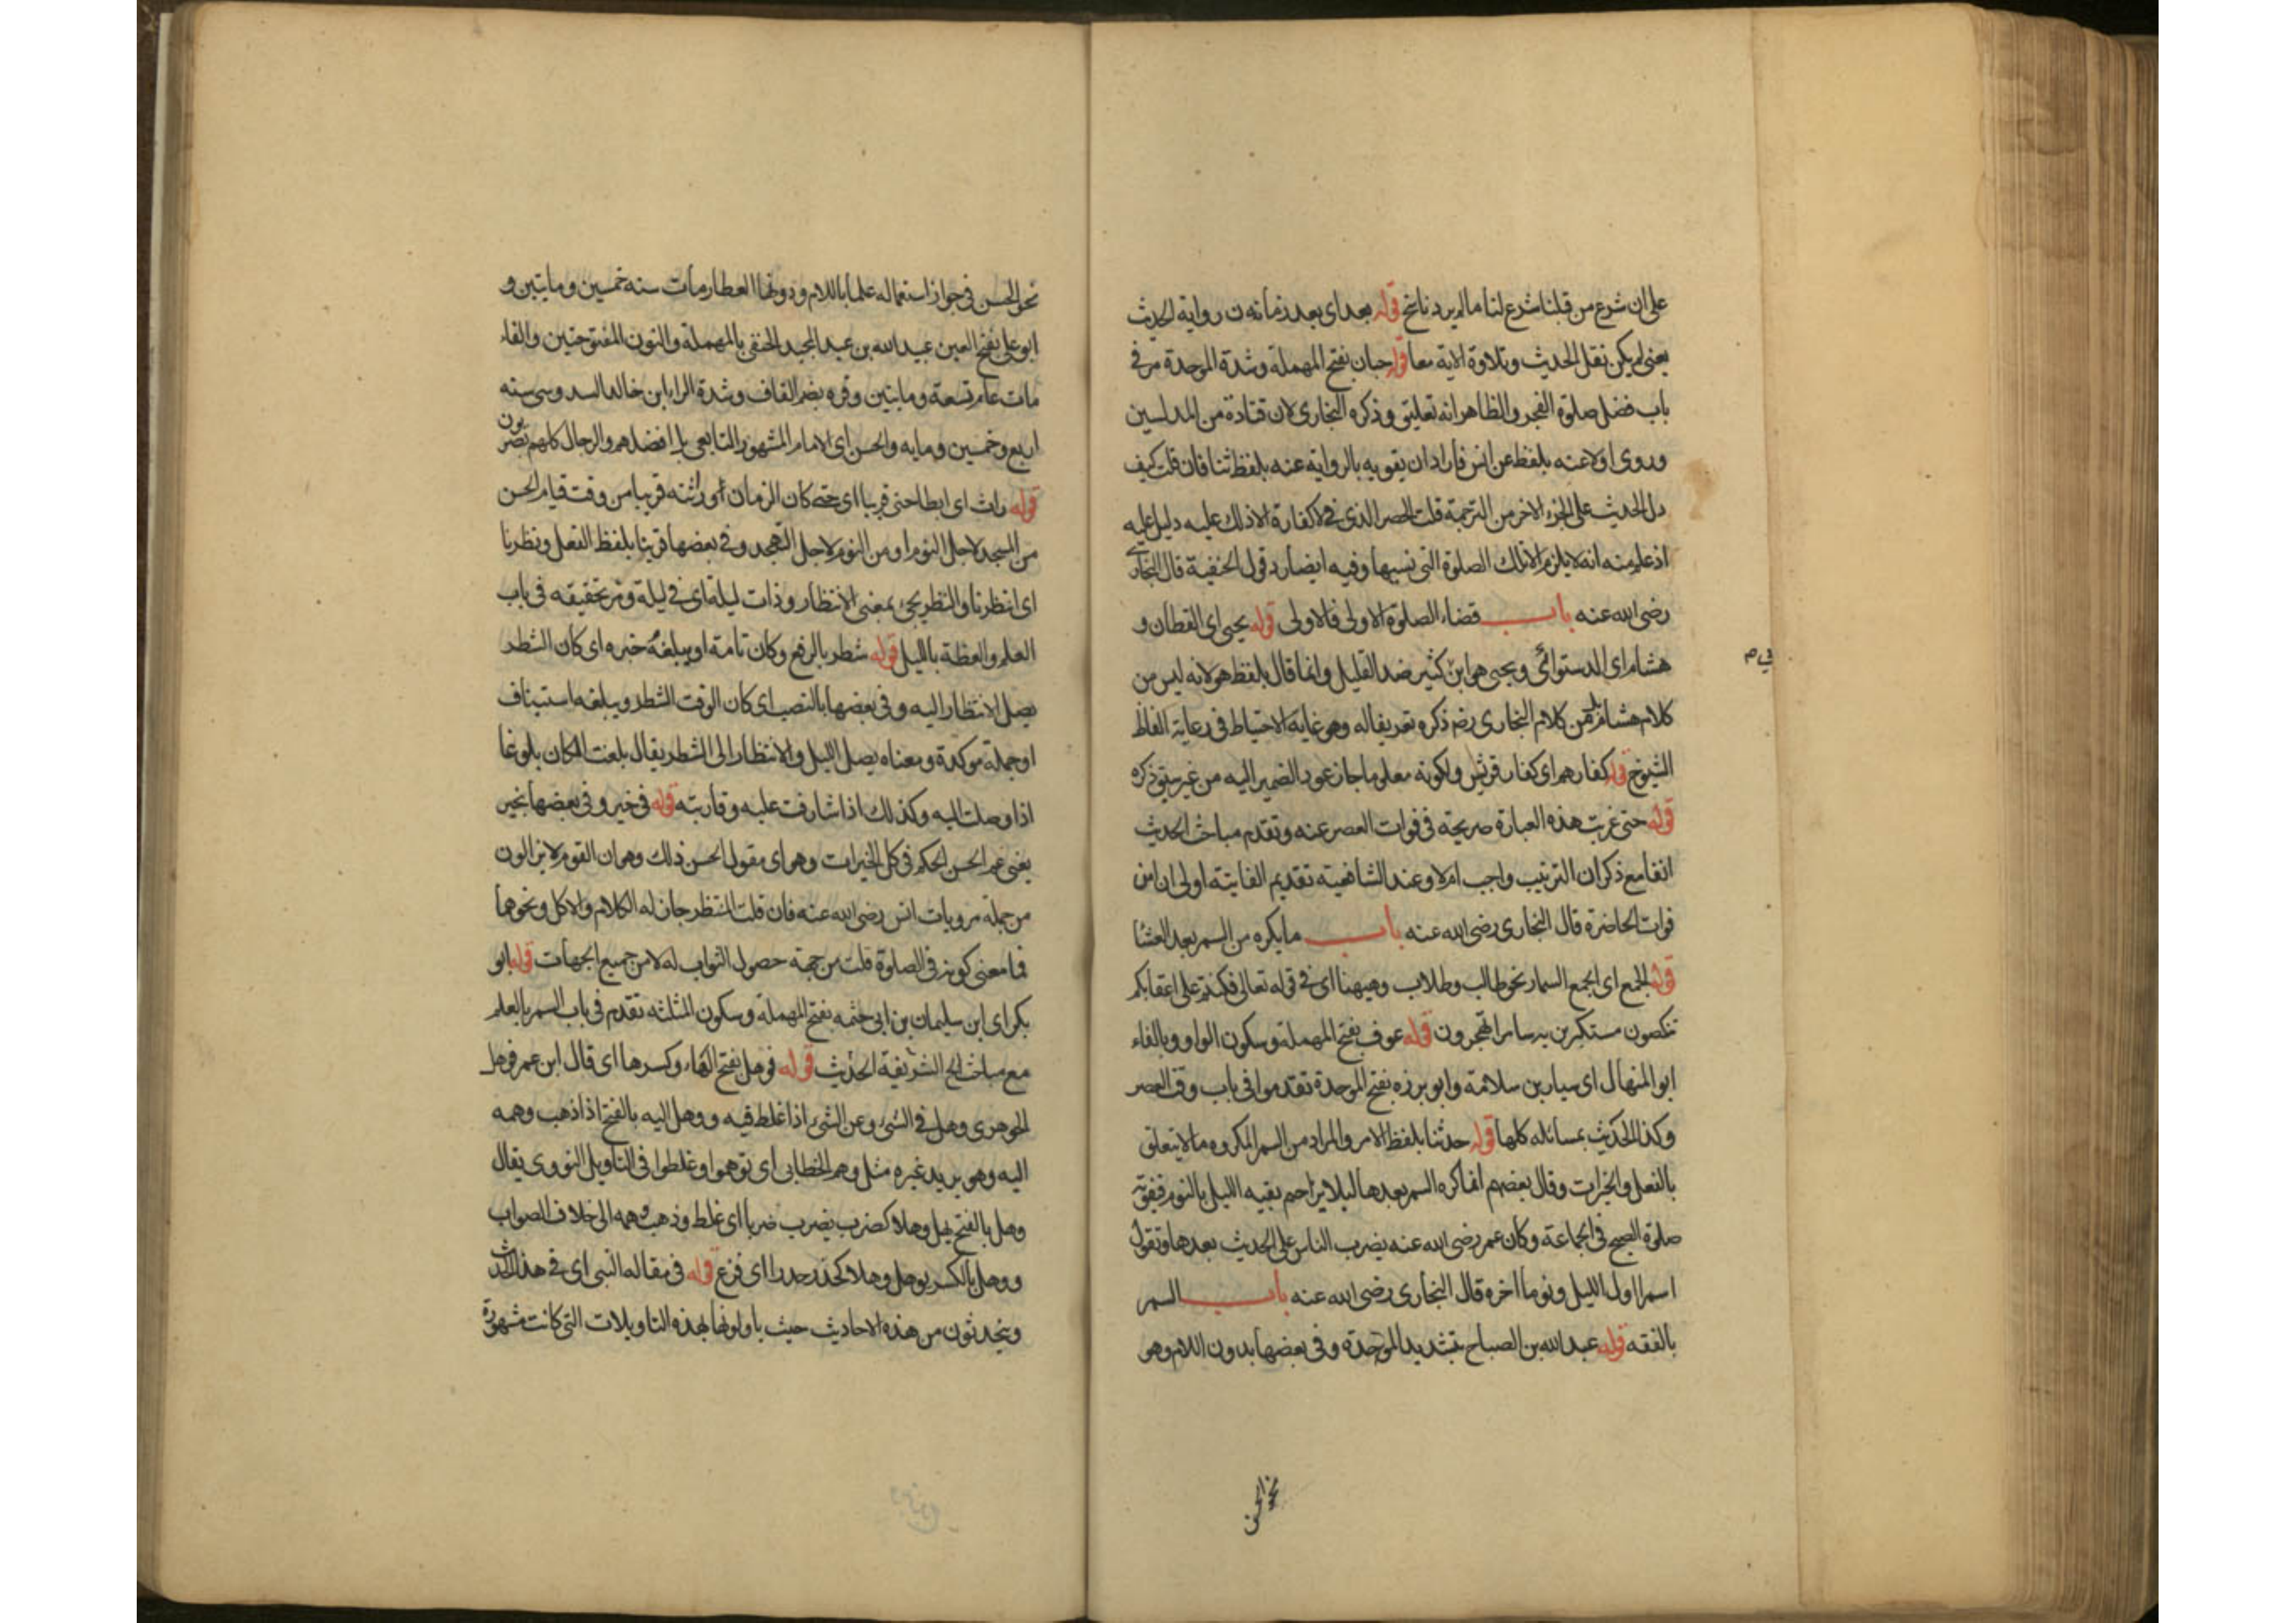 على ان شرع من قبلنا شرع لنا ما لم يرد ناسخ قوله بعد اى بعد زمانه ن رواية الحديث
يعنى لم يكن نقل الحديث وتلاوة الاية معا قوله حبان بفتح المهملة وشدة الموحدة مر فى
باب فضل صلوة الفجر والظاهر انه تعليق وذكره البخارى لان قتادة من المدلسين
وروى اولا عنه بلفظ عن انس فاراد ان يقويه بالرواية عنه بلفظ ثنا فان قلت كيف
دل الحديث على الجزء الاخر من الترجمة قلت الحصر الذى فى لا كفارة الا ذلك عليه دليل عليه
اذ علم منه انه لا يلزم الا تلك الصلوة التى نسيها وفيه ايضا رد قول الحنفية قال البخارى
رضى الله عنه باب قضاء الصلوة الاولى فالاولى قوله يحيى اى القطان و
هشام اى الدستوائى ويحيى هو ابن كثير ضد القليل وانما قال بلفظ هو لانه ليس من
كلام هشام بل من كلام البخارى رضه ذكره تعريفا له وهو غاية الاحتياط فى رعاية الفاظ
الشيوخ قوله كفارهم اى كفار قريش ولكونه معلوما جاز عود الضمير اليه من غير سبق ذكره
قوله حتى غربت هذه العبارة صريحة فى فوات العصر عنه وتقدم مباحث الحديث
انفا مع ذكر ان الترتيب واجب ام لا وعند الشافعية تقديم الفايتة اولى ان امن
فوات الحاضرة قال البخارى رضى الله عنه باب ما يكره من السمر بعد العشا
قوله الجمع اى الجمع السمار نحو طالب وطلاب وههنا اى فى قوله تعالى فكنتم على اعقابكم
تنكصون مستكبرين به سامرا تهجرون قوله عوف بفتح المهملة وسكون الواو وبالفاء
ابو المنهال اى سيار بن سلامة وابو برزه بفتح الموحدة تقدموا فى باب وقت العصر
وكذا الحديث بمسائله كلها قوله حدثنا بلفظ الامر والمراد من السمر المكروه ما لا يتعلق
بالفعل والخيرات وقال بعضهم انما كره السمر بعدها ليلا يزاحم بقيه الليل بالنوم فيفوته
صلوة الصبح فى الجماعة وكان عمر رضى الله عنه يضرب الناس على الحديث بعدها وتقول
اسمرا اول الليل ونوما اخره قال البخارى رضى الله عنه باب السمر
بالفقه قوله عبد الله بن الصباح بتشديد الموحدة وفى بعضها بدون اللام وهو
نحو الحسن
نحو الحسن فى جواز استعماله علما باللام ودونها العطار مات سنه خمسين ومايتين و
ابو على بفتح العين عبيد الله بن عبد المجيد الحنفى بالمهملة والنون المفتوحتين والفاء
مات عام تسعة ومايتين وقره بضم القاف وشدة الراء ابن خالد السدوسى سنه
اربع وخمسين ومايه والحسن اى الامام المشهور التابعى بل افضلهم والرجال كلهم بصريون
قوله راث اى ابطا حتى قربيا اى حتى كان الزمان او راثته قريبا من وقت قيام الحسن
من المسجد لاجل النوم او من النوم لاجل التهجد وفى بعضها قربنا بلفظ الفعل ونظرنا
اى انتظرنا والنظر يجئ بمعنى الانتظار وذات ليلة اى فى ليلة ومر تحقيقه فى باب
العلم والعظة بالليل قوله شطر بالرفع وكان تامة او يبلغه خبره اى كان الشطر
يصل الانتظار اليه وفى بعضها بالنصب اى كان الوقت الشطر ويبلغه استيناف
او جملة موكدة ومعناه يصل الليل والانتظار الى الشطر يقال بلغت المكان بلوغا
اذا وصلت اليه وكذلك اذا شارفت عليه وقاربته قوله فى خير وفى بعضها بخير
يعنى عم الحسن الحكم فى كل الخيرات وهو اى مقول الحسن ذلك وهو ان القوم لا يزالون
من جملة مرويات انس رضى الله عنه فان قلت المنتظر جاز له الكلام والاكل ونحوهما
فما معنى كونه فى الصلوة قلت من جهة حصول الثواب له لا من جميع الجهات قوله ابو
بكر اى ابن سليمان بن ابى حثمه بفتح المهملة وسكون المثلثه تقدم فى باب السمر بالعلم
مع مباحث الشريفة الحديث قوله فوهل بفتح الهاء وكسرها اى قال ابن عمر فوهل
الجوهرى وهل فى الشئ وعن الشئ اذا غلط فيه ووهل اليه بالفتح اذا ذهب وهمه
اليه وهو يريد غيره مثل وهم الخطابى اى توهموا وغلطوا فى التاويل النووى يقال
وهل بالفتح يهل وهلا كضرب يضرب ضربا اى غلط وذهب وهمه الى خلاف الصواب
ووهل بالكسر يوهل وهلا كحذر حدرا اى فزع قوله فى مقاله النبى اى فى هذا الحديث
ويتحدثون من هذه الاحاديث حيث ياولونها بهذه التاويلات التى كانت مشهورة